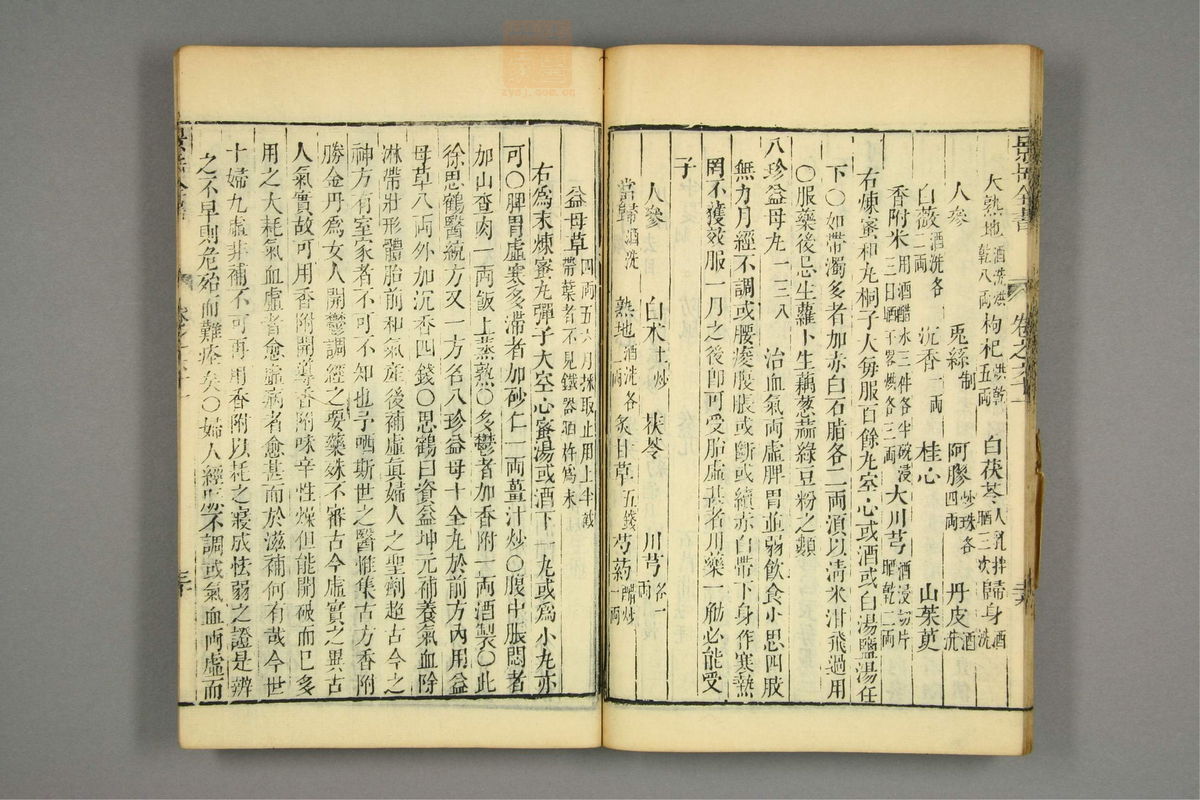 大熟地酒洗烘乾八兩 枸杞烘乾五兩 白茯苓人乳拌晒三次 歸身酒洗
人參 兎絲制 阿膠炒珠各四兩 丹皮酒洗
白薇酒洗各二兩 沉香一兩 桂心 山茱萸
香附米用酒醋水三件各半碗浸三日晒干畧燠各三兩 大川芎酒浸切片晒乾二兩
右煉蜜和丸桐子大每服百餘丸空心或酒或白湯鹽湯任
下〇如帶濁多者加赤白石脂各二兩湏以清米泔飛過用
〇服藥後忌生蘿卜生藕葱蒜綠豆粉之類
八珍益母丸一三八 治血氣兩虛脾胃並弱飲食小思四肢
無力月經不調或腰痠腹脹或斷或續赤白帶下身作寒熱
罔不獲效服一月之後即可受胎虛甚者用藥一觔必能受
子
人參 白术土炒 茯苓 川芎各一兩
當歸酒洗 熟地酒洗各二兩 炙甘草五錢 芍藥醋炒一兩
益母草四兩五六月採取止用上半截帶葉者不見鐵器晒杵爲末
右爲末煉蜜丸彈子大空心蜜湯或酒下一丸或爲小丸亦
可〇脾胃虛寒多滯者加砂仁一兩薑汁炒〇腹中脹悶者
加山查肉一兩飯上蒸熟〇多鬱者加香附一兩酒製〇此
徐思鶴醫統方又一方名八珍益母十全丸於前方內用益
母草八兩外加沉香四錢〇思鶴曰資益坤元補養氣血除
淋帶壯形體胎前和氣產後補虛真婦人之聖劑超古今之
神方有室家者不可不知也予哂斯世之醫惟集古方香附
勝金丹爲女人開鬱調經之要藥殊不審古今虛實之異古
人氣實故可用香附開導香附味辛性燥但能開破而已多
用之大耗氣血虛者愈虛病者愈甚而於滋補何有哉今世
十婦九虛非補不可再用香附以耗之寖成怯弱之證是辨
之不早則危殆而難痊矣〇婦人經脉不調或氣血兩虛而